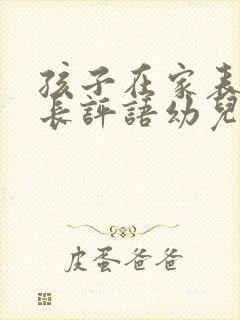 孩子在家表
長評語幼兒
皮蛋爸爸